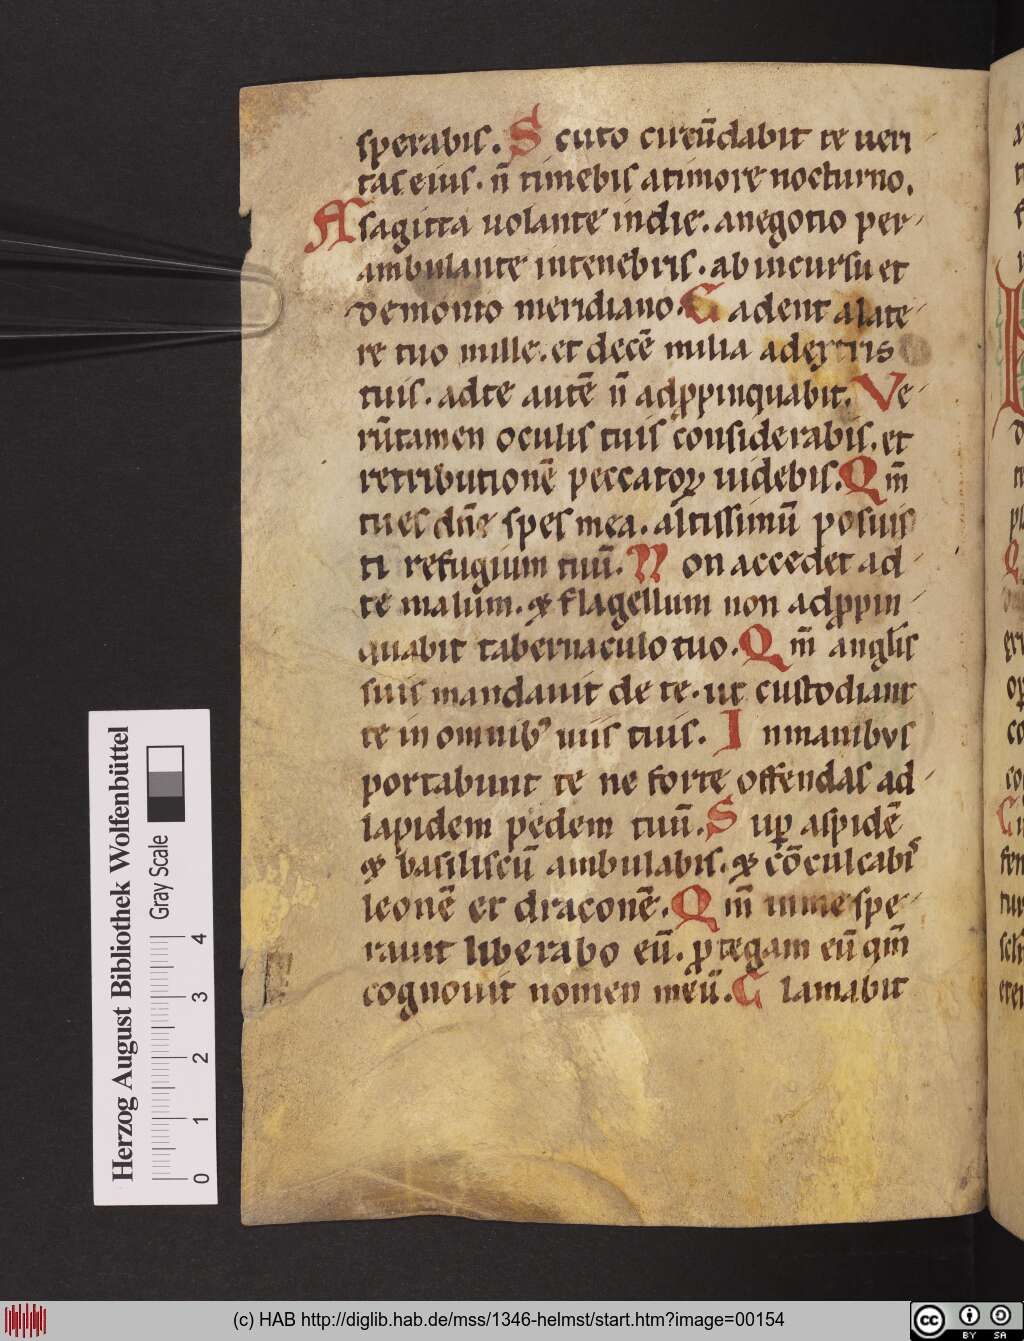 sperabis. Scuto circūdabit te ueri
tas eius. n̄ timebis a timore nocturno.
A sagitta uolante in die. a negotio per
ambulante in tenebris. ab incursu et
demonio meridiano. Cadent a late
re tuo mille. et decē milia a dextris
tuis. ad te autē n̄ adp̱pinquabit. Ve
rūtamen oculis tuis considerabis. et
retributionē peccatoꝝ uidebis. Qm̄
tu es dn̄e spes mea. altissimū posuis
ti refugium tuū. Non accedet ad
te malum. & flagellum non adꝓpin
quabit tabernaculo tuo. Qm̄ angl̄is
suis mandauit de te. ut custodiant
te in omnibꝰ uiis tuis. In manibus
portabunt te ne forte offendas ad
lapidem pedem tuū. Suꝑ aspidē
& basiliscū ambulabis. & cōculcabis
leonē et draconē. Qm̄ in me spe
rauit liberabo eū. ꝓtegam eū qm̄
cognouit nomen meū. Clamabit
Herzog August Bibliothek Wolfenbüttel
Gray Scale
0 1 2 3 4
(c) HAB http://diglib.hab.de/mss/1346-helmst/start.htm?image=00154
cc BY SA